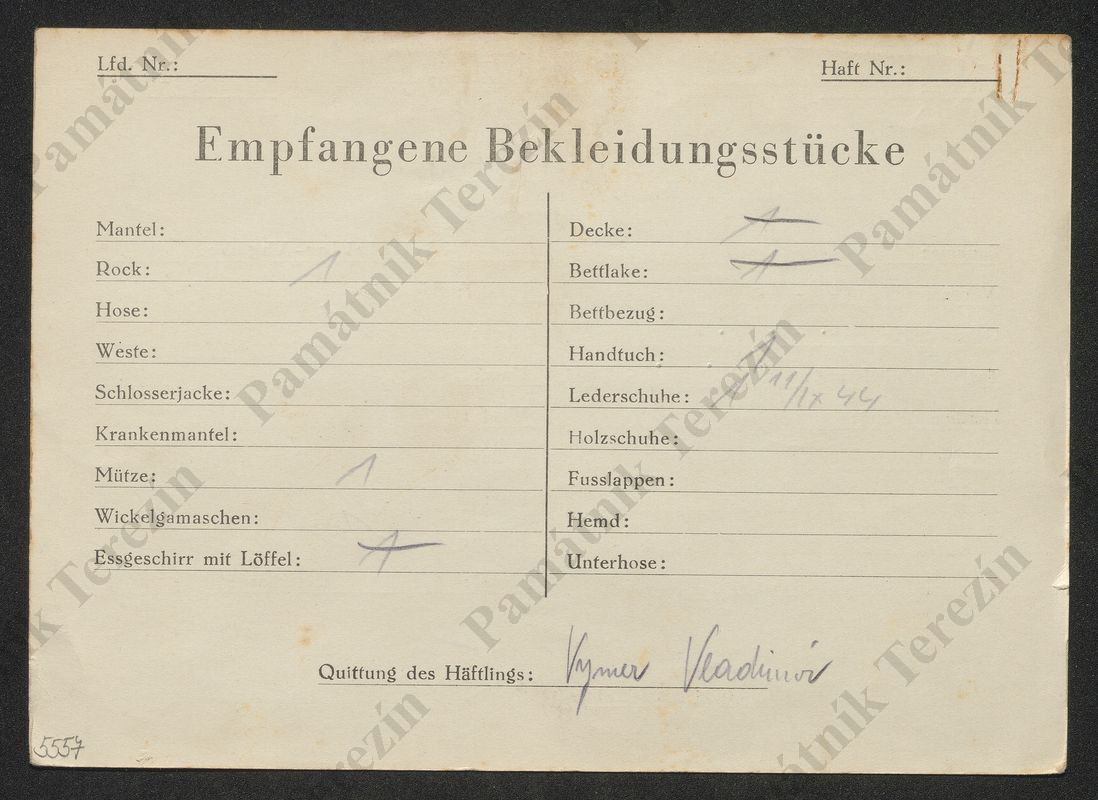 Lfd. Nr.:
Haft Nr.:
Empfangene Bekleidungsstücke
Mantel:
Rock: 1
Hose:
Weste:
Schlosserjacke:
Krankenmantel:
Mütze: 1
Wickelgamaschen:
Essgeschirr mit Löffel: 1
Decke: 1
Bettlake: 1
Bettbezug:
Handtuch: 1
Lederschuhe: 1 11/IX 44
Holzschuhe:
Fusslappen:
Hemd:
Unterhose:
Quittung des Häftlings: Vymer Vladimír
5557
Památník Terezín
Památník Terezín
Památník Terezín
Památník Terezín